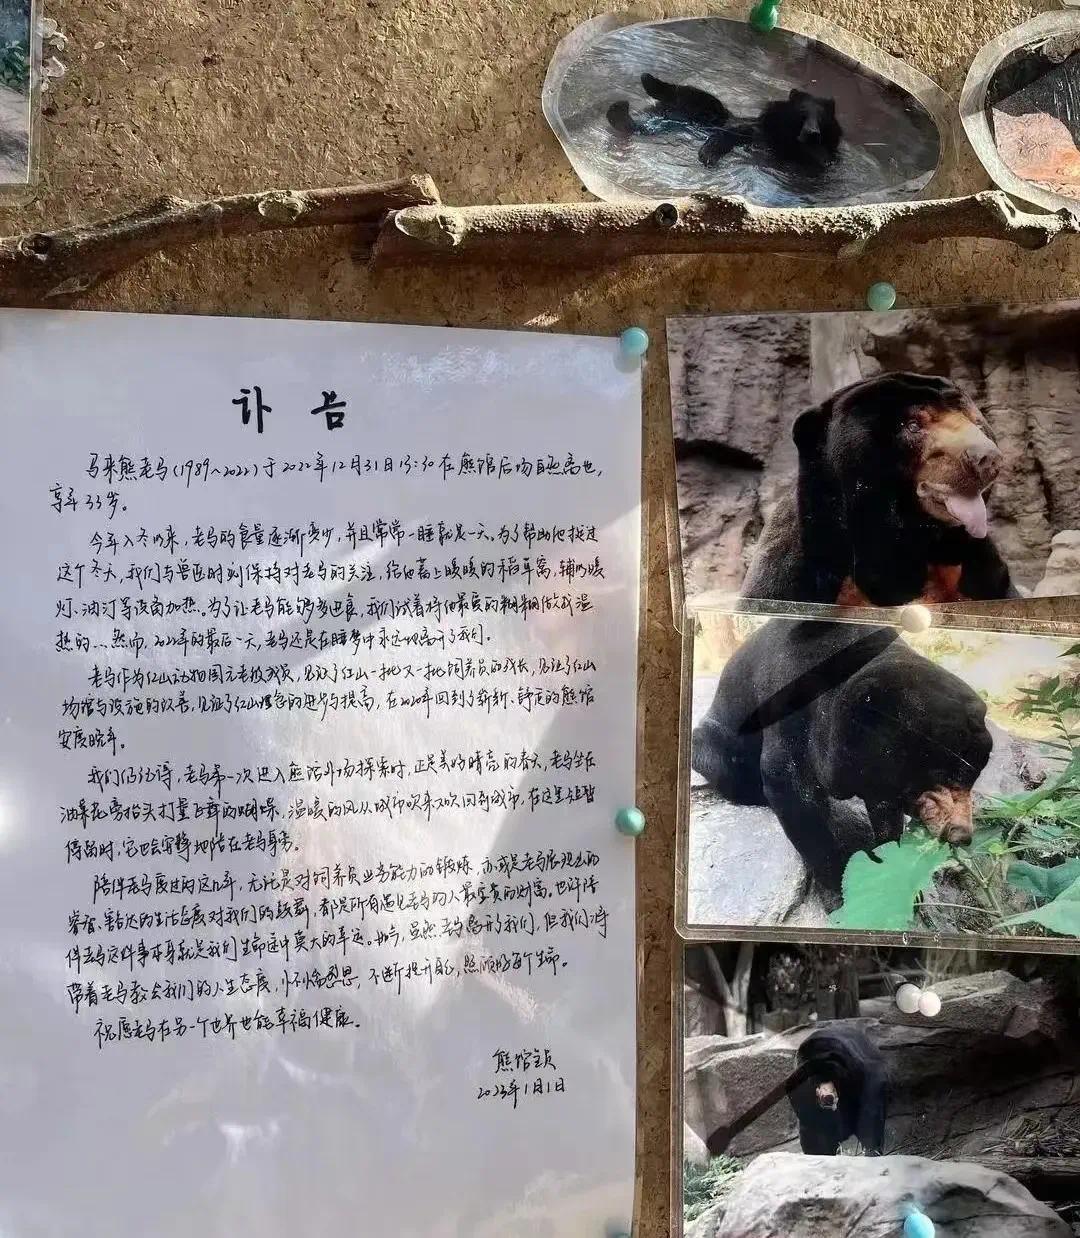 讣 告
马来熊老马(1989~2022)于2022年12月31日13:30在熊馆后场自然离世,
享年33岁。
今年入冬以来,老马的食量逐渐变少,并且常常一睡就是一天。为了帮助他挺过
这个冬天,我们与兽医时刻保持对老马的关注,给他蓄上暖暖的稻草窝,辅以暖
灯、油汀等设备加热。为了让老马能够多进食,我们试着将他最爱的粥粥做成温
热的…然而,2022年的最后一天,老马还是在睡梦中永远地离开了我们。
老马作为红山动物园元老级成员,见证了红山一批又一批饲养员的成长,见证了红山
场馆与设施的改善,见证了红山理念的进步与提高,在2020年回到了崭新、舒适的熊馆
安度晚年。
我们仍记得,老马第一次进入熊馆外场探索时,正是美好晴亮的春天,老马坐在
油菜花旁抬头打量飞舞的蝴蝶,温暖的风从城市吹来又吹回到城市,在这里短暂
停留时,它也会安静地陪在老马身旁。
陪伴老马度过的这几年,无论是对饲养员业务能力的锻炼,亦或是老马展现出的
睿智、豁达的生活态度对我们的鼓舞,都是所有遇见老马的人最宝贵的财富。也许陪
伴老马这件事本身就是我们生命途中莫大的幸运。如今,虽然老马离开了我们,但我们将
带着老马教会我们的人生态度,心怀感恩,不断提升自己,照顾好每个生命。
祝愿老马在另一个世界也能幸福健康。
熊馆全员
2023年1月1日